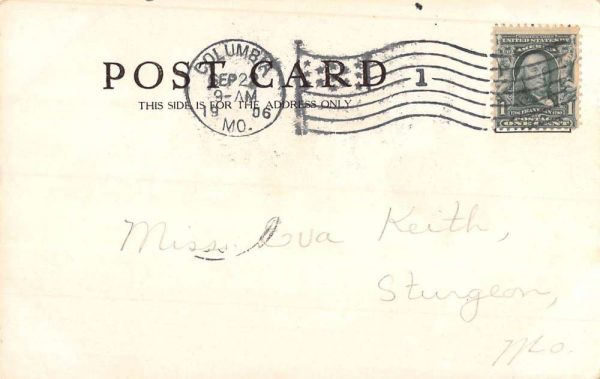 COLUMBIA
SEP 2
9-AM
19 06
MO.
1
POST CARD
THIS SIDE IS FOR THE ADDRESS ONLY
UNITED STATES OF
AMERICA
1 FRANKLIN 1
POSTAGE
ONE CENT
Miss Eva Keith,
Sturgeon,
Mo.